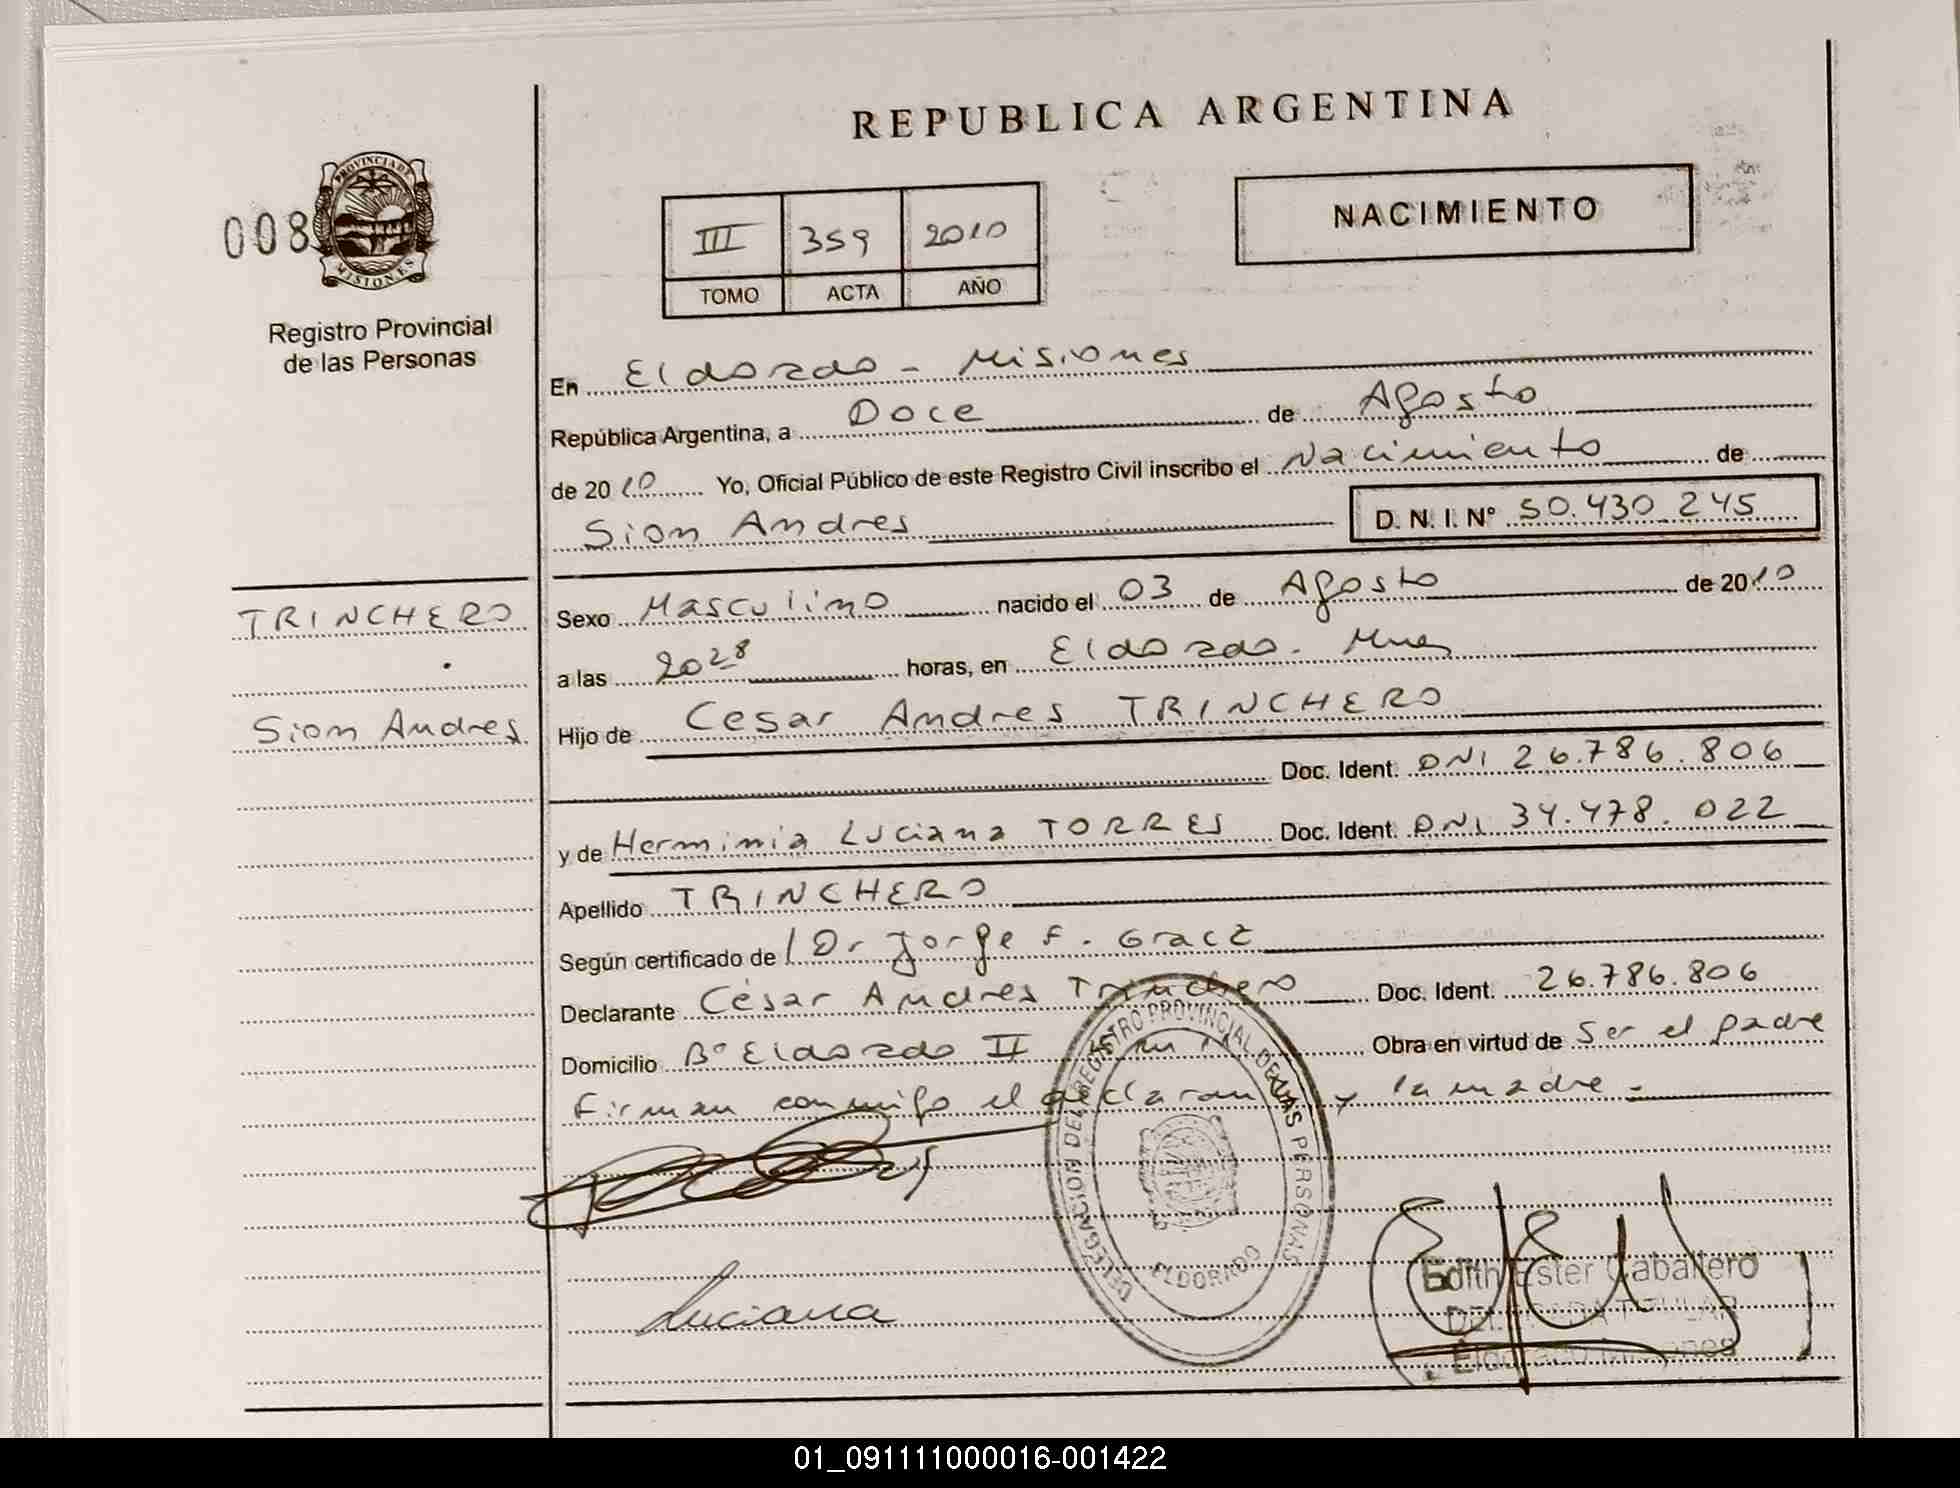 REPUBLICA ARGENTINA
008
PROVINCIA DE
MISIONES
Registro Provincial
de las Personas
III 359 2010
TOMO ACTA AÑO
NACIMIENTO
En Eldorado - Misiones
República Argentina, a Doce de Agosto
de 2010 Yo, Oficial Público de este Registro Civil inscribo el Nacimiento de
Sion Andres D. N. I. Nº 50.430.245
TRINCHERO
Sion Andres
Sexo Masculino nacido el 03 de Agosto de 2010
a las 20 28 horas, en Eldorado - Mnes
Hijo de Cesar Andres TRINCHERO
Doc. Ident. DNI 26.786.806
y de Herminia Luciana TORRES Doc. Ident. DNI 34.478.022
Apellido TRINCHERO
Según certificado de / Dr Jorge F. Gracz
Declarante César Andres Trinchero Doc. Ident. 26.786.806
Domicilio Bº Eldorado II Obra en virtud de Ser el padre
Firman conmigo el declaran y la madre -
DELEGACION DEL REGISTRO PROVINCIAL DE LAS PERSONAS
ELDORADO
Luciana
Edith Ester Caballero
DELEGADA TITULAR
Eldorado Misiones
01_091111000016-001422